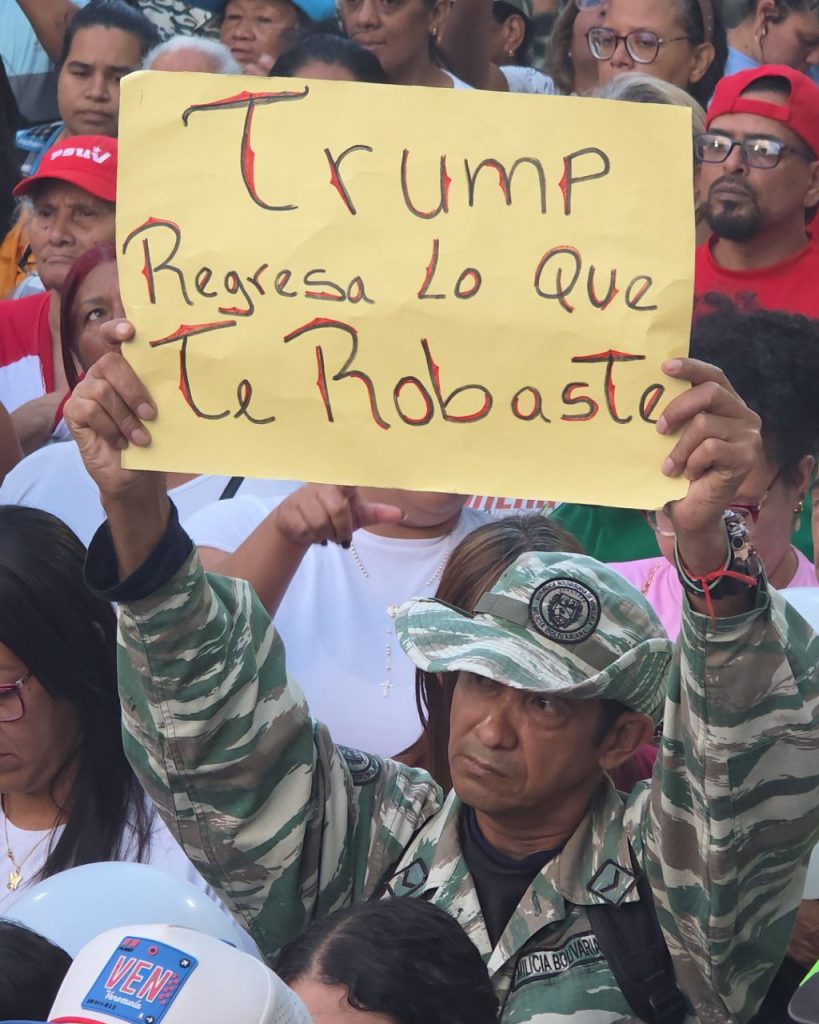 psuv
Trump
Regresa Lo Que
Te Robaste
MILICIA BOLI
VEN
Venezuela